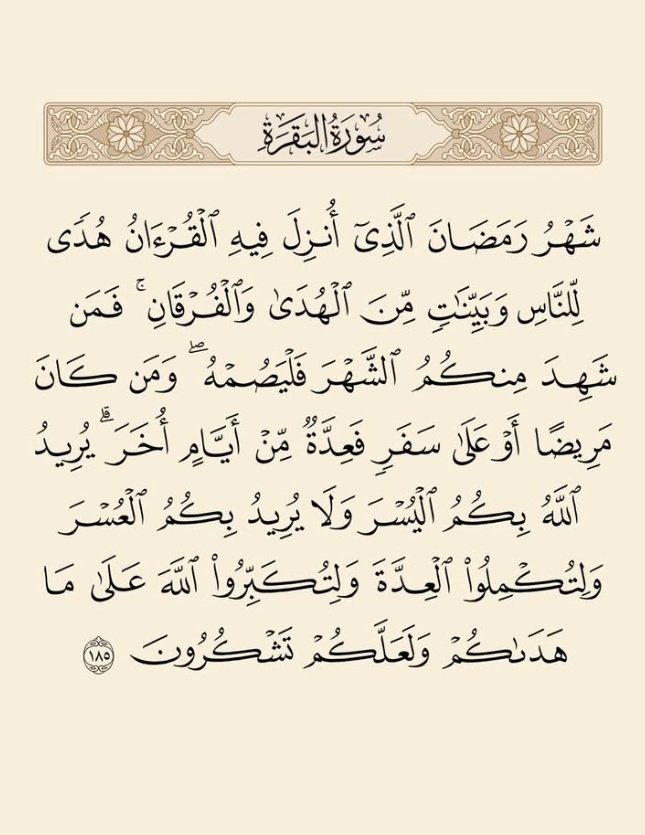 سُورَةُ البَقَرَةِ
شَهْرُ رَمَضَانَ ٱلَّذِىٓ أُنزِلَ فِيهِ ٱلْقُرْءَانُ هُدًى
لِّلنَّاسِ وَبَيِّنَـٰتٍ مِّنَ ٱلْهُدَىٰ وَٱلْفُرْقَانِ ۚ فَمَن
شَهِدَ مِنكُمُ ٱلشَّهْرَ فَلْيَصُمْهُ ۖ وَمَن كَانَ
مَرِيضًا أَوْ عَلَىٰ سَفَرٍ فَعِدَّةٌ مِّنْ أَيَّامٍ أُخَرَ ۗ يُرِيدُ
ٱللَّهُ بِكُمُ ٱلْيُسْرَ وَلَا يُرِيدُ بِكُمُ ٱلْعُسْرَ
وَلِتُكْمِلُوا۟ ٱلْعِدَّةَ وَلِتُكَبِّرُوا۟ ٱللَّهَ عَلَىٰ مَا
هَدَىٰكُمْ وَلَعَلَّكُمْ تَشْكُرُونَ ١٨٥